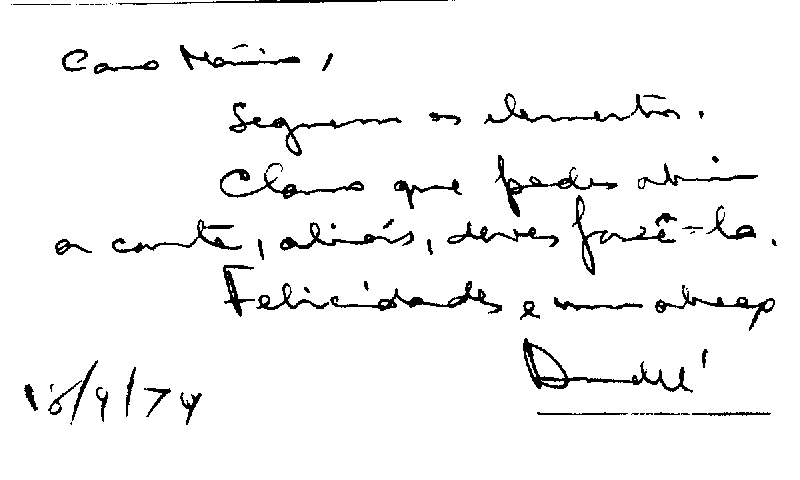 Caro Márcio,
Seguem os elementos.
Claro que podes abrir
a conta, aliás, deves fazê-la.
Felicidades e um abraço
18/9/74